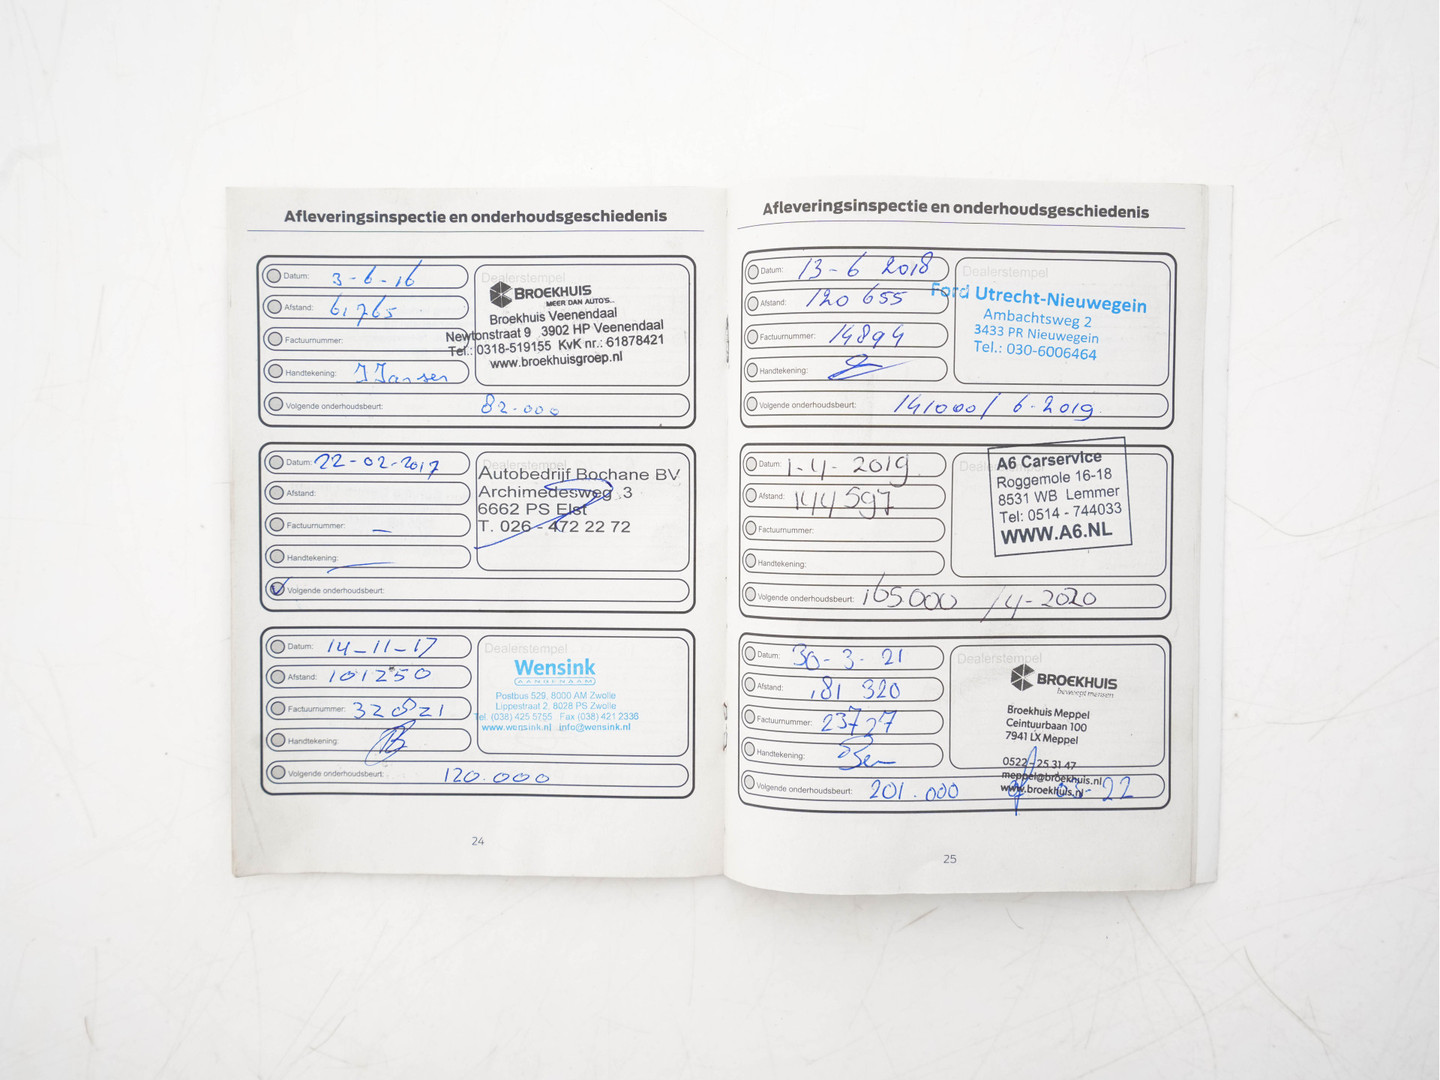 Afleveringsinspectie en onderhoudsgeschiedenis
Datum: 3-6-16
Afstand: 61765
Factuurnummer:
Handtekening: JJansen
Volgende onderhoudsbeurt: 82.000
Dealerstempel
BROEKHUIS
MEER DAN AUTO'S...
Broekhuis Veenendaal
Newtonstraat 9 3902 HP Veenendaal
Tel.: 0318-519155 KvK nr.: 61878421
www.broekhuisgroep.nl
Datum: 22-02-2017
Afstand:
Factuurnummer: -
Handtekening:
Volgende onderhoudsbeurt:
Dealerstempel
Autobedrijf Bochane BV
Archimedesweg 3
6662 PS Elst
T. 026 - 472 22 72
Datum: 14-11-17
Afstand: 101250
Factuurnummer: 320821
Handtekening:
Volgende onderhoudsbeurt: 120.000
Dealerstempel
Wensink
Postbus 529, 8000 AM Zwolle
Lippestraat 2, 8028 PS Zwolle
Tel. (038) 425 5755 Fax (038) 421 2336
www.wensink.nl info@wensink.nl
24
Afleveringsinspectie en onderhoudsgeschiedenis
Datum: 13-6 2018
Afstand: 120 655
Factuurnummer: 14894
Handtekening:
Volgende onderhoudsbeurt: 141000/ 6-2019
Dealerstempel
Ford Utrecht-Nieuwegein
Ambachtsweg 2
3433 PR Nieuwegein
Tel.: 030-6006464
Datum: 1-4-2019
Afstand: 144597
Factuurnummer:
Handtekening:
Volgende onderhoudsbeurt: 165.000 /4-2020
A6 Carservice
Roggemole 16-18
8531 WB Lemmer
Tel: 0514 - 744033
WWW.A6.NL
Datum: 30-3-21
Afstand: 181 320
Factuurnummer: 23727
Handtekening:
Volgende onderhoudsbeurt: 201.000 of 03-22
Dealerstempel
BROEKHUIS
beweegt mensen
Broekhuis Meppel
Ceintuurbaan 100
7941 LX Meppel
0522 - 25 31 47
meppel@broekhuis.nl
www.broekhuis.nl
25